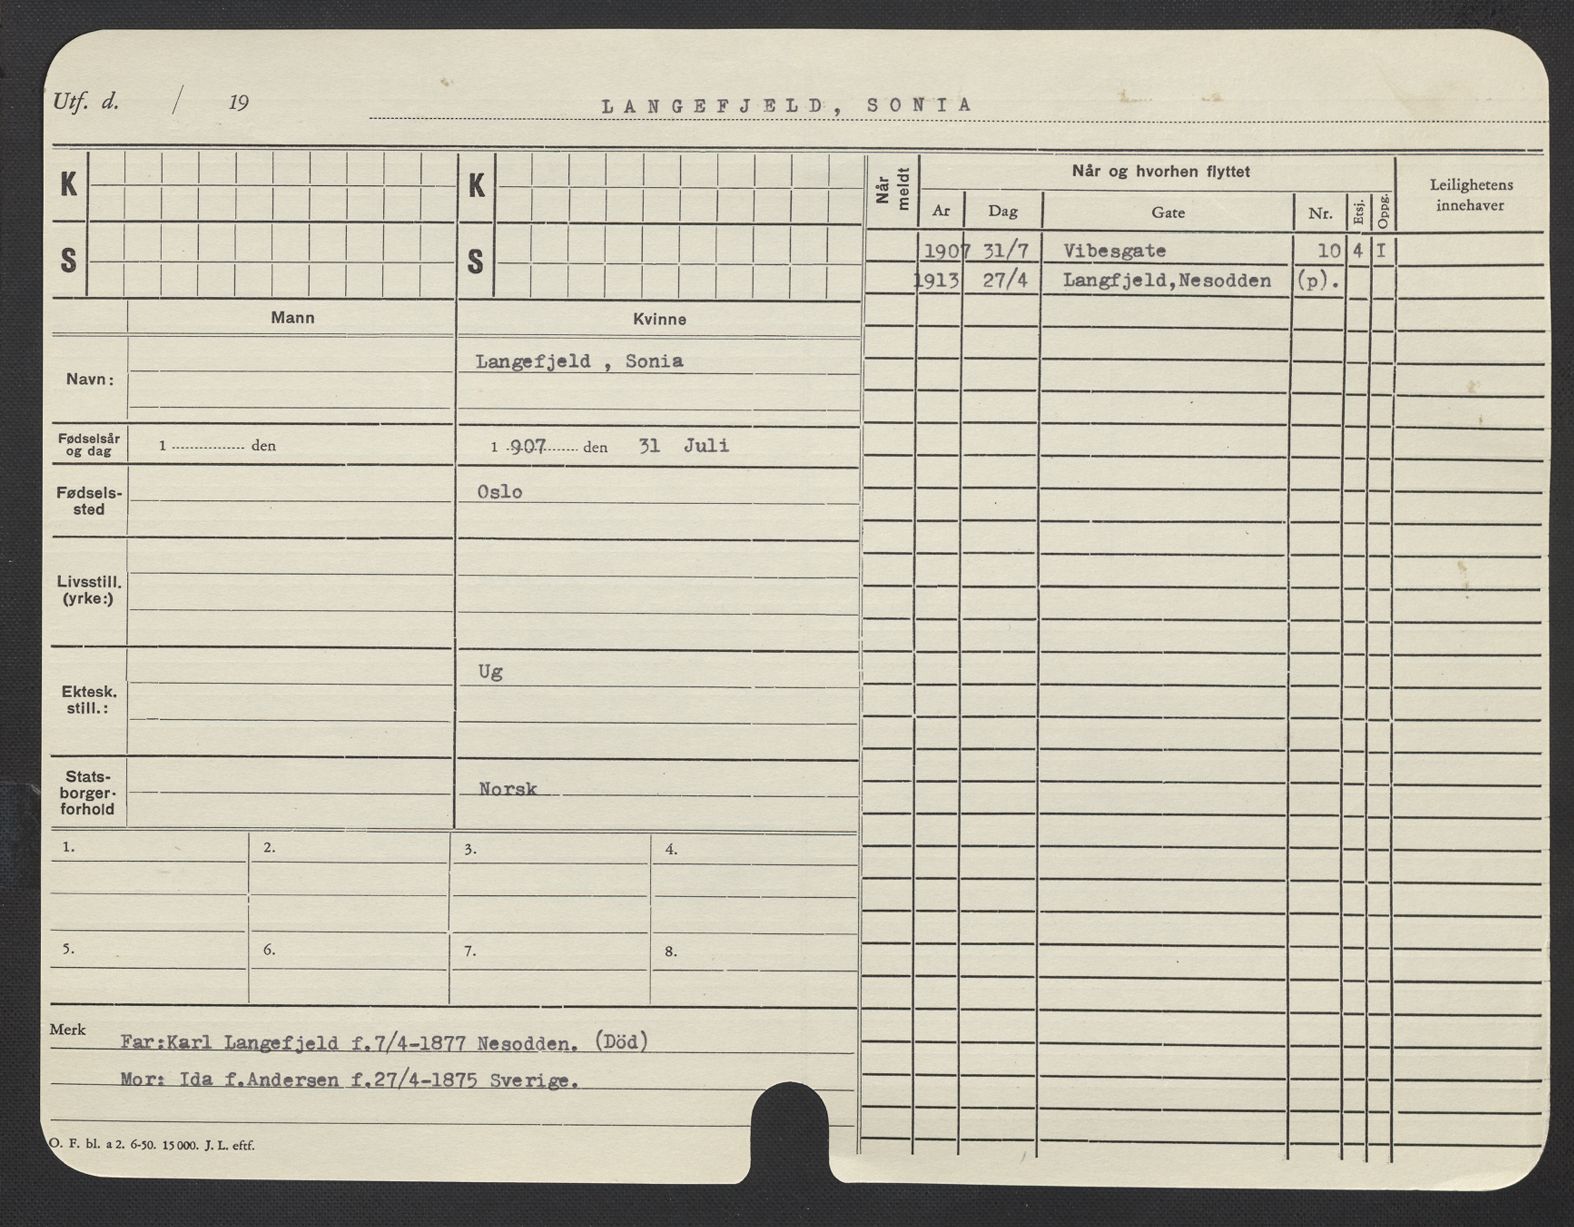 Utf. d. / 19
LANGEFJELD, SONIA
K
K
S
S
Mann
Kvinne
Navn:
Langefjeld , Sonia
Fødselsår
og dag
1 ........ den
1 907 den 31 Juli
Fødsels-
sted
Oslo
Livsstill.
(yrke:)
Ektesk.
still.:
Ug
Stats-
borger-
forhold
Norsk
1. 2. 3. 4.
5. 6. 7. 8.
Merk
Far:Karl Langefjeld f.7/4-1877 Nesodden. (Död)
Mor: Ida f.Andersen f.27/4-1875 Sverige.
O. F. bl. a 2. 6-50. 15 000. J. L. eftf.
Når
meldt
Når og hvorhen flyttet
Leilighetens
innehaver
Ar Dag Gate Nr. Etsj. Oppg.
1907 31/7 Vibesgate 10 4 I
1913 27/4 Langfjeld,Nesodden (p).